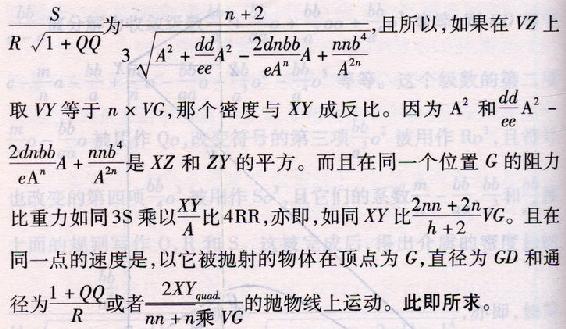 $\frac{S}{R\sqrt{1+QQ}}$为$\frac{n+2}{3\sqrt{A^2+\frac{dd}{ee}A^2-\frac{2dnbb}{eA^n}A+\frac{nnb^4}{A^{2n}}}}$,且所以,如果在 VZ 上
取 VY 等于 n × VG,那个密度与 XY 成反比。因为 $A^2$ 和$\frac{dd}{ee}A^2-$
$\frac{2dnbb}{eA^n}A+\frac{nnb^4}{A^{2n}}$是 XZ 和 ZY 的平方。而且在同一个位置 G 的阻力
比重力如同 3S 乘以$\frac{XY}{A}$比 4RR,亦即,如同 XY 比$\frac{2nn+2n}{h+2}$VG。且在
同一点的速度是,以它被抛射的物体在顶点为 G,直径为 GD 和通
径为$\frac{1+QQ}{R}$或者$\frac{2XY^{quad.}}{nn+n乘 VG}$的抛物线上运动。此即所求。